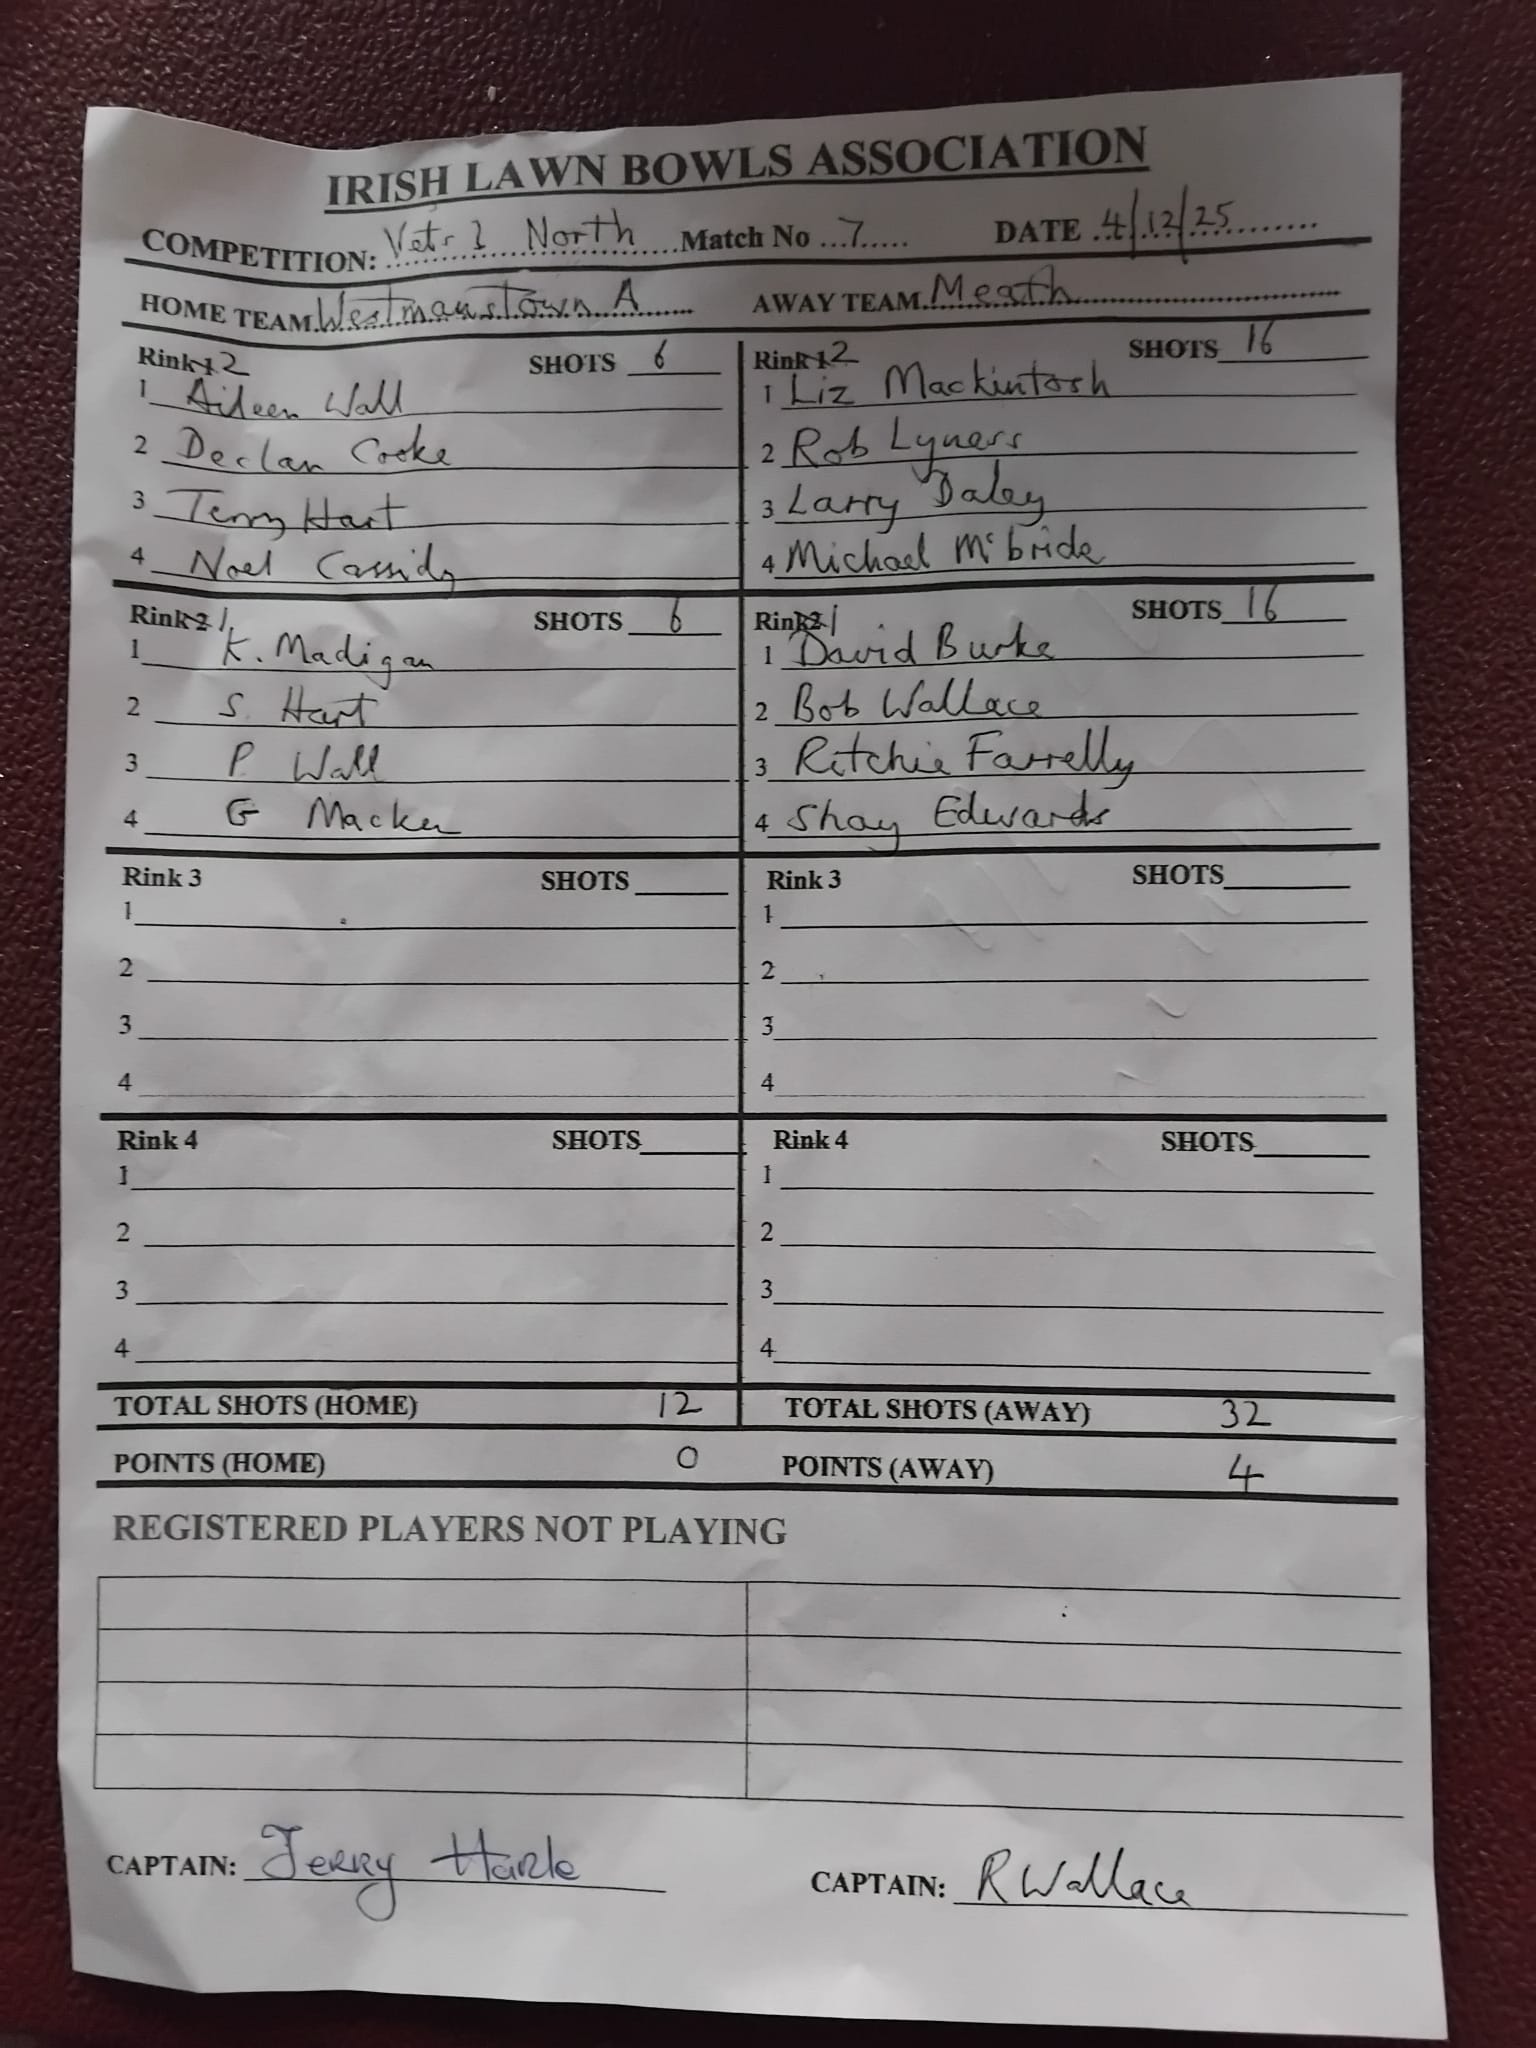 IRISH LAWN BOWLS ASSOCIATION
COMPETITION: Vets North Match No 7 DATE 4/12/25
HOME TEAM Westmanstown A AWAY TEAM Meath
Rink 1 2 SHOTS 6
1 Aileen Wall
2 Declan Cooke
3 Terry Hart
4 Noel Cassidy
Rink 1 2 SHOTS 16
1 Liz Mackintosh
2 Rob Lyness
3 Larry Daley
4 Michael McBride
Rink 2 1 SHOTS 6
1 K. Madigan
2 S. Hart
3 P Wall
4 G Macken
Rink 2 1 SHOTS 16
1 David Burke
2 Bob Wallace
3 Ritchie Farrelly
4 Shay Edwards
Rink 3 SHOTS
1
2
3
4
Rink 3 SHOTS
1
2
3
4
Rink 4 SHOTS
1
2
3
4
Rink 4 SHOTS
1
2
3
4
TOTAL SHOTS (HOME) 12 TOTAL SHOTS (AWAY) 32
POINTS (HOME) 0 POINTS (AWAY) 4
REGISTERED PLAYERS NOT PLAYING
CAPTAIN: Terry CAPTAIN: R Wallace